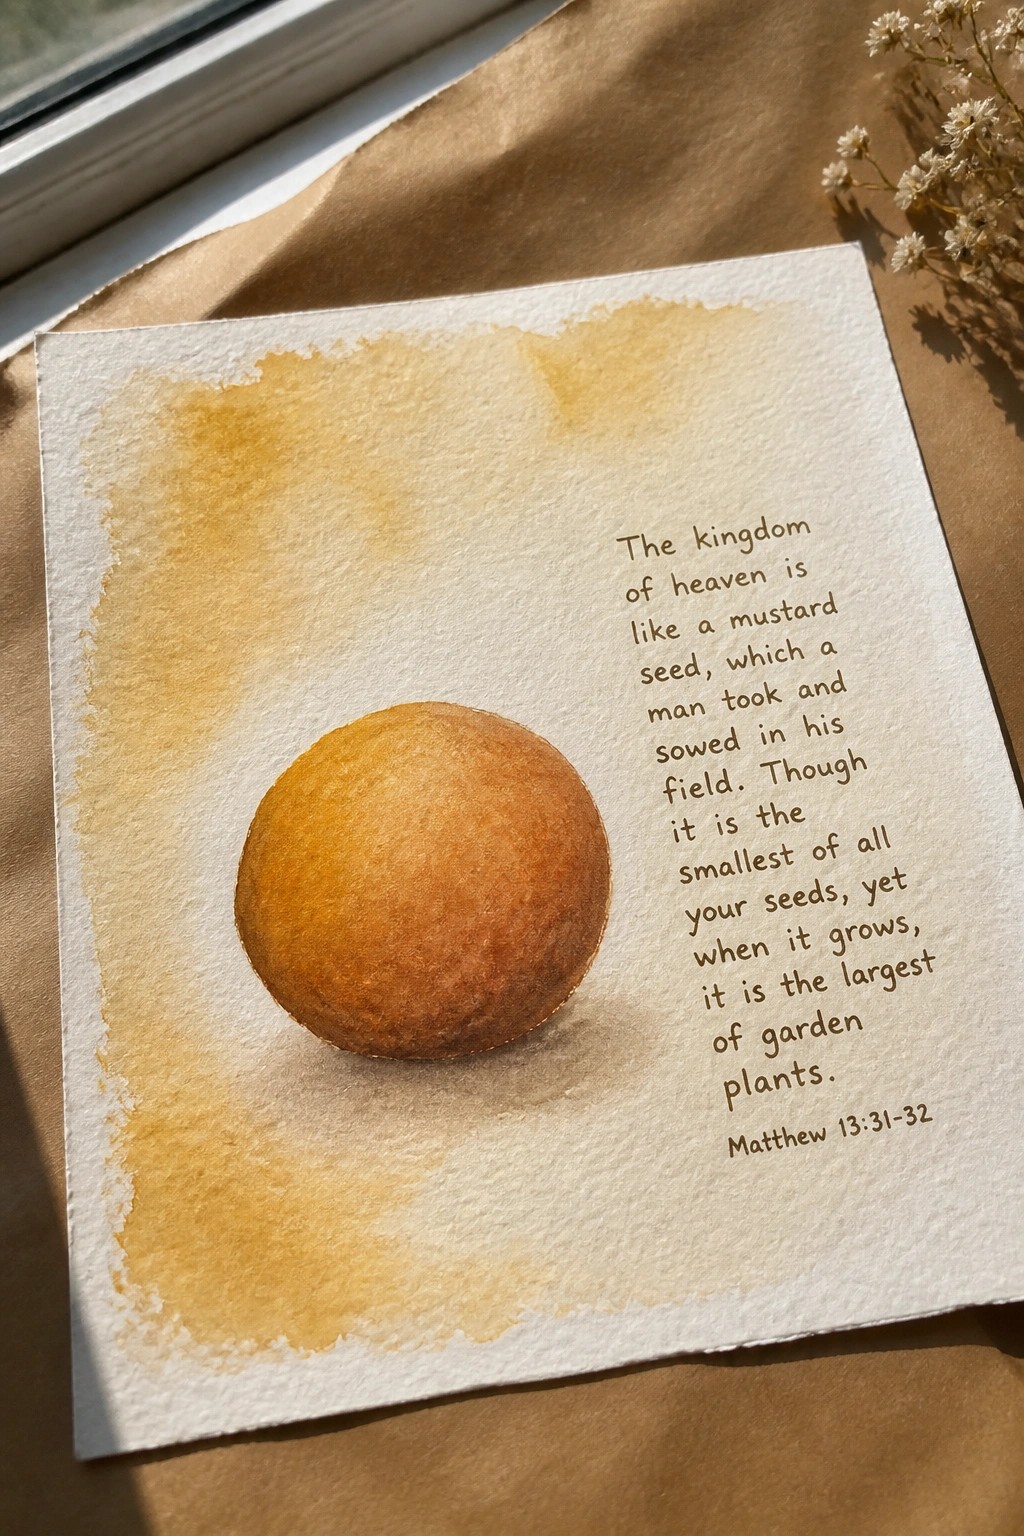 The kingdom
of heaven is
like a mustard
seed, which a
man took and
sowed in his
field. Though
it is the
smallest of all
your seeds, yet
when it grows,
it is the largest
of garden
plants.
Matthew 13:31-32